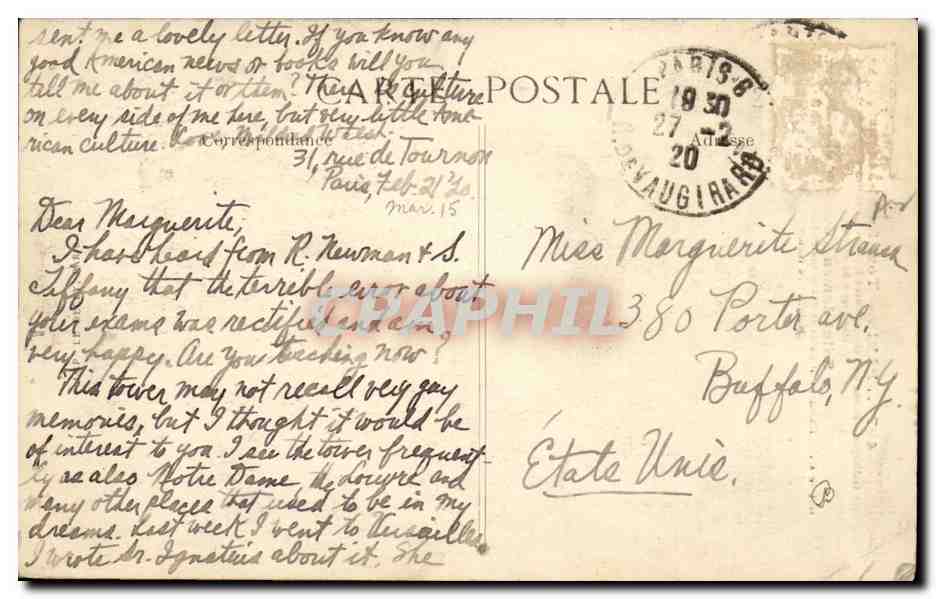 sent me a lovely letter. If you know any
good American news or books will you
tell me about it or them? There is culture
on every side of me here, but very little Ame-
rican culture. Love
CARTE POSTALE
Correspondance
Adresse
PARIS-6
19 30
27 -2
20
R. DE VAUGIRARD
31, rue de Tournon
Paris, Feb. 21 '20
Mar. 15
Dear Marguerite,
I have heard from R. Newman & S.
Tiffany that the terrible error about
your exams was rectified and am
very happy. Are you teaching now?
This tower may not recall very gay
memories, but I thought it would be
of interest to you. I see the tower frequent-
ly as also Notre Dame, the Louvre and
many other places that used to be in my
dreams. Last week I went to Versailles.
I wrote Sr. Ignatius about it. She
Miss Marguerite
380 Porter ave.
Buffalo, N.Y.
États Unis.
CPAPHIL